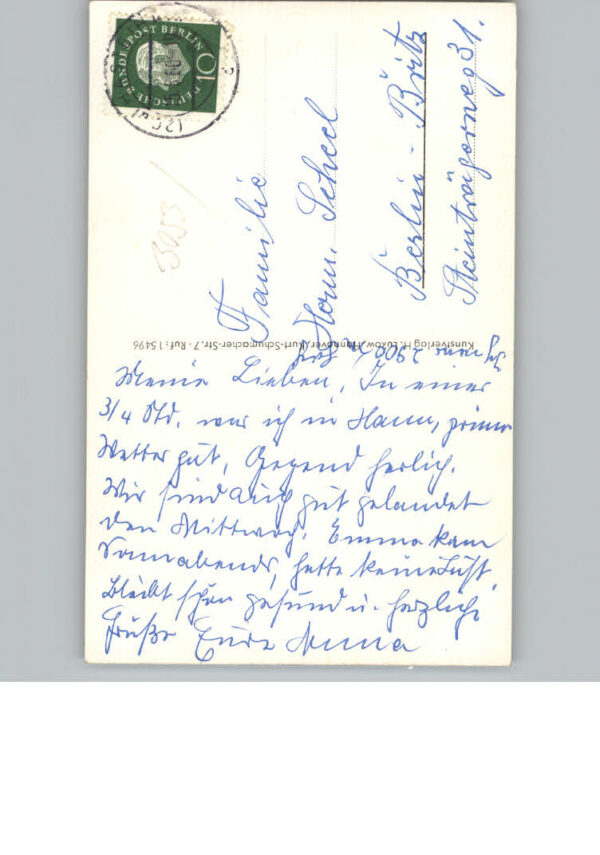 DEUTSCHE BUNDESPOST BERLIN
10
3053
Familie
Herm. Scheel
Berlin-Britz
Steinträgerweg 31.
Kunstverlag H. Lukow, Hannover, Kurt-Schumacher-Str. 7 · Ruf: 15496
Meine Lieben, In einer
3/4 Std. war ich in Hann, prima
Wetter gut, Gegend herlich.
Wir sind auch gut gelandet
den Mittwoch. Emma kam
Sonnabends, hatte keine Lust
bleibt schön gesund u. herzliche
Grüße Eure Anna